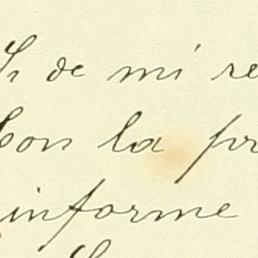 de mi re
Con la pr
informe